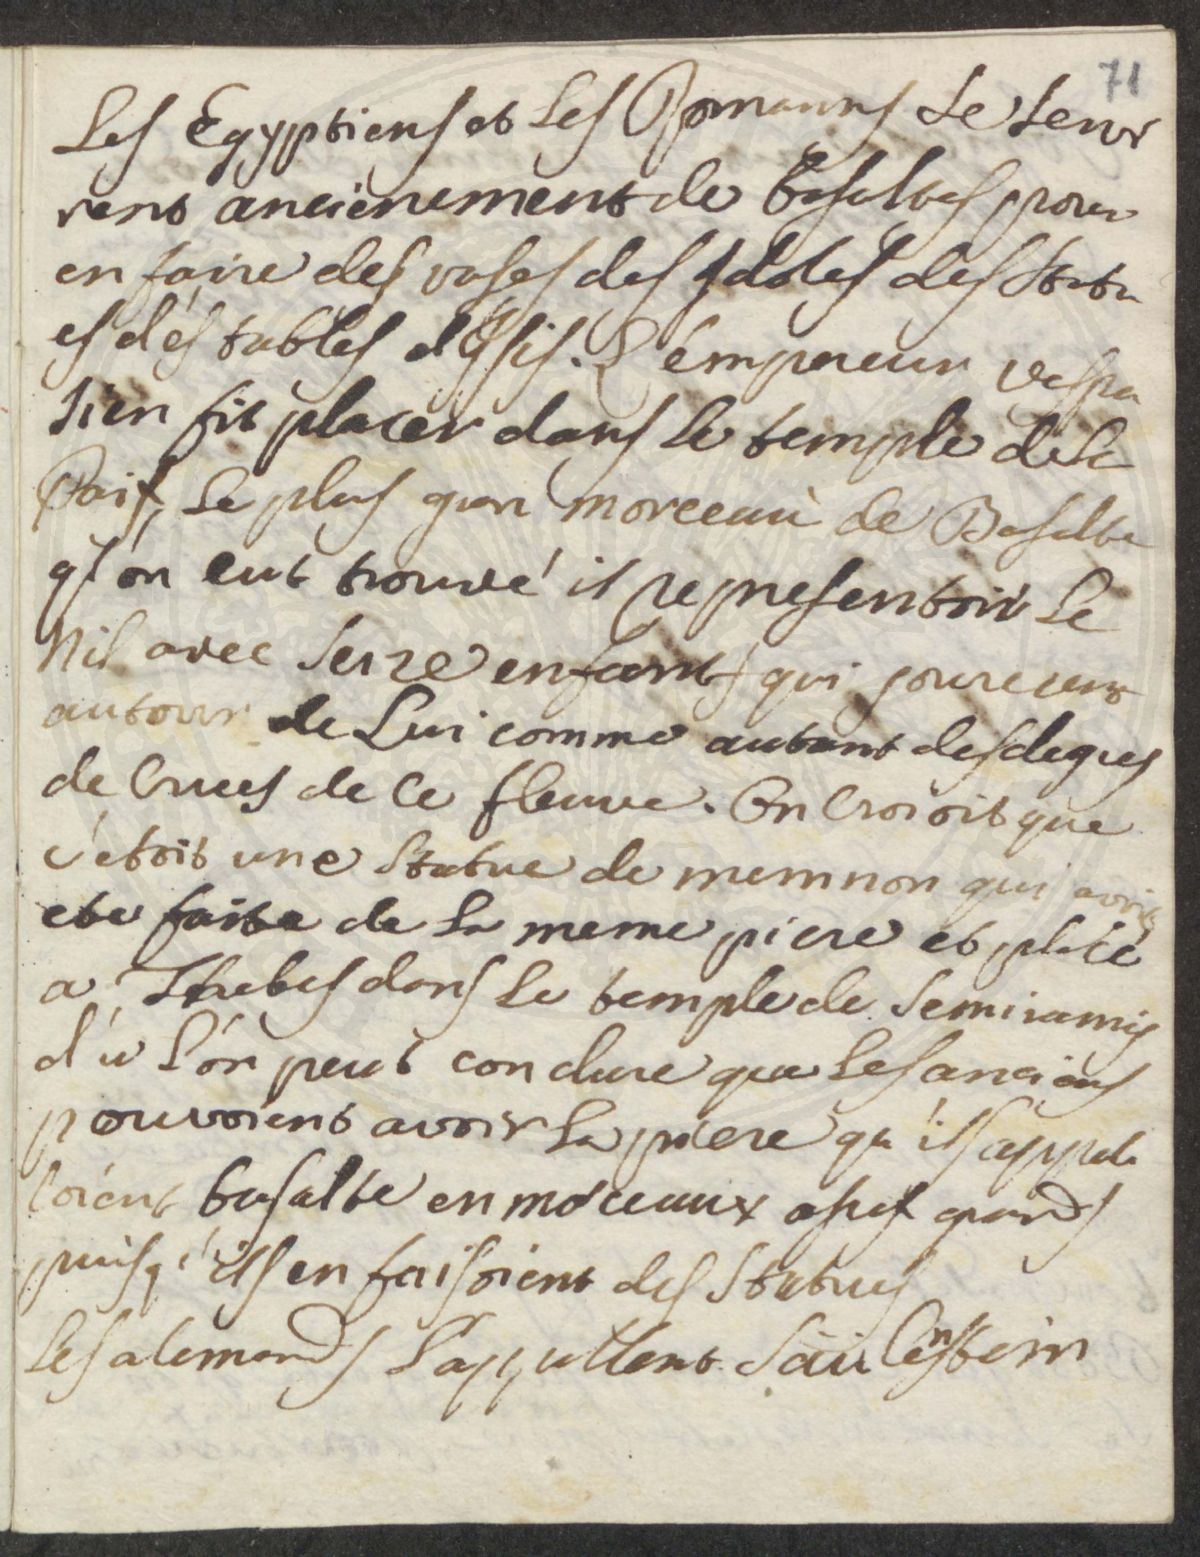 71
Les Egyptiens et Les Romains se servi
rent anciènement de basaltes pour
en faire des vases des Idoles des Statu
es dés tables d'Isis. L'émpereur vespa
sien fit placer dans le temple de la
Paix, le plus gran morceau de Basalte
q'on eut trouvé il representoit Le
Nil avec seize enfants qui jouoient
autour de Lui comme autant des degres
de Crues de ce fleuve. On Croioit que
c'etoit une Statue de memnon qui avoit
ete faite de la meme piere et placé
a Thebes dans le temple de Semiramis
d'u l'on peut conclure que les anciens
pouvoient avoir la piere qu'ils appel
loient basalte en morceaux assez grands
puisq'ils en faisoient des Statues
Les alemands L'appellent Säulenstein